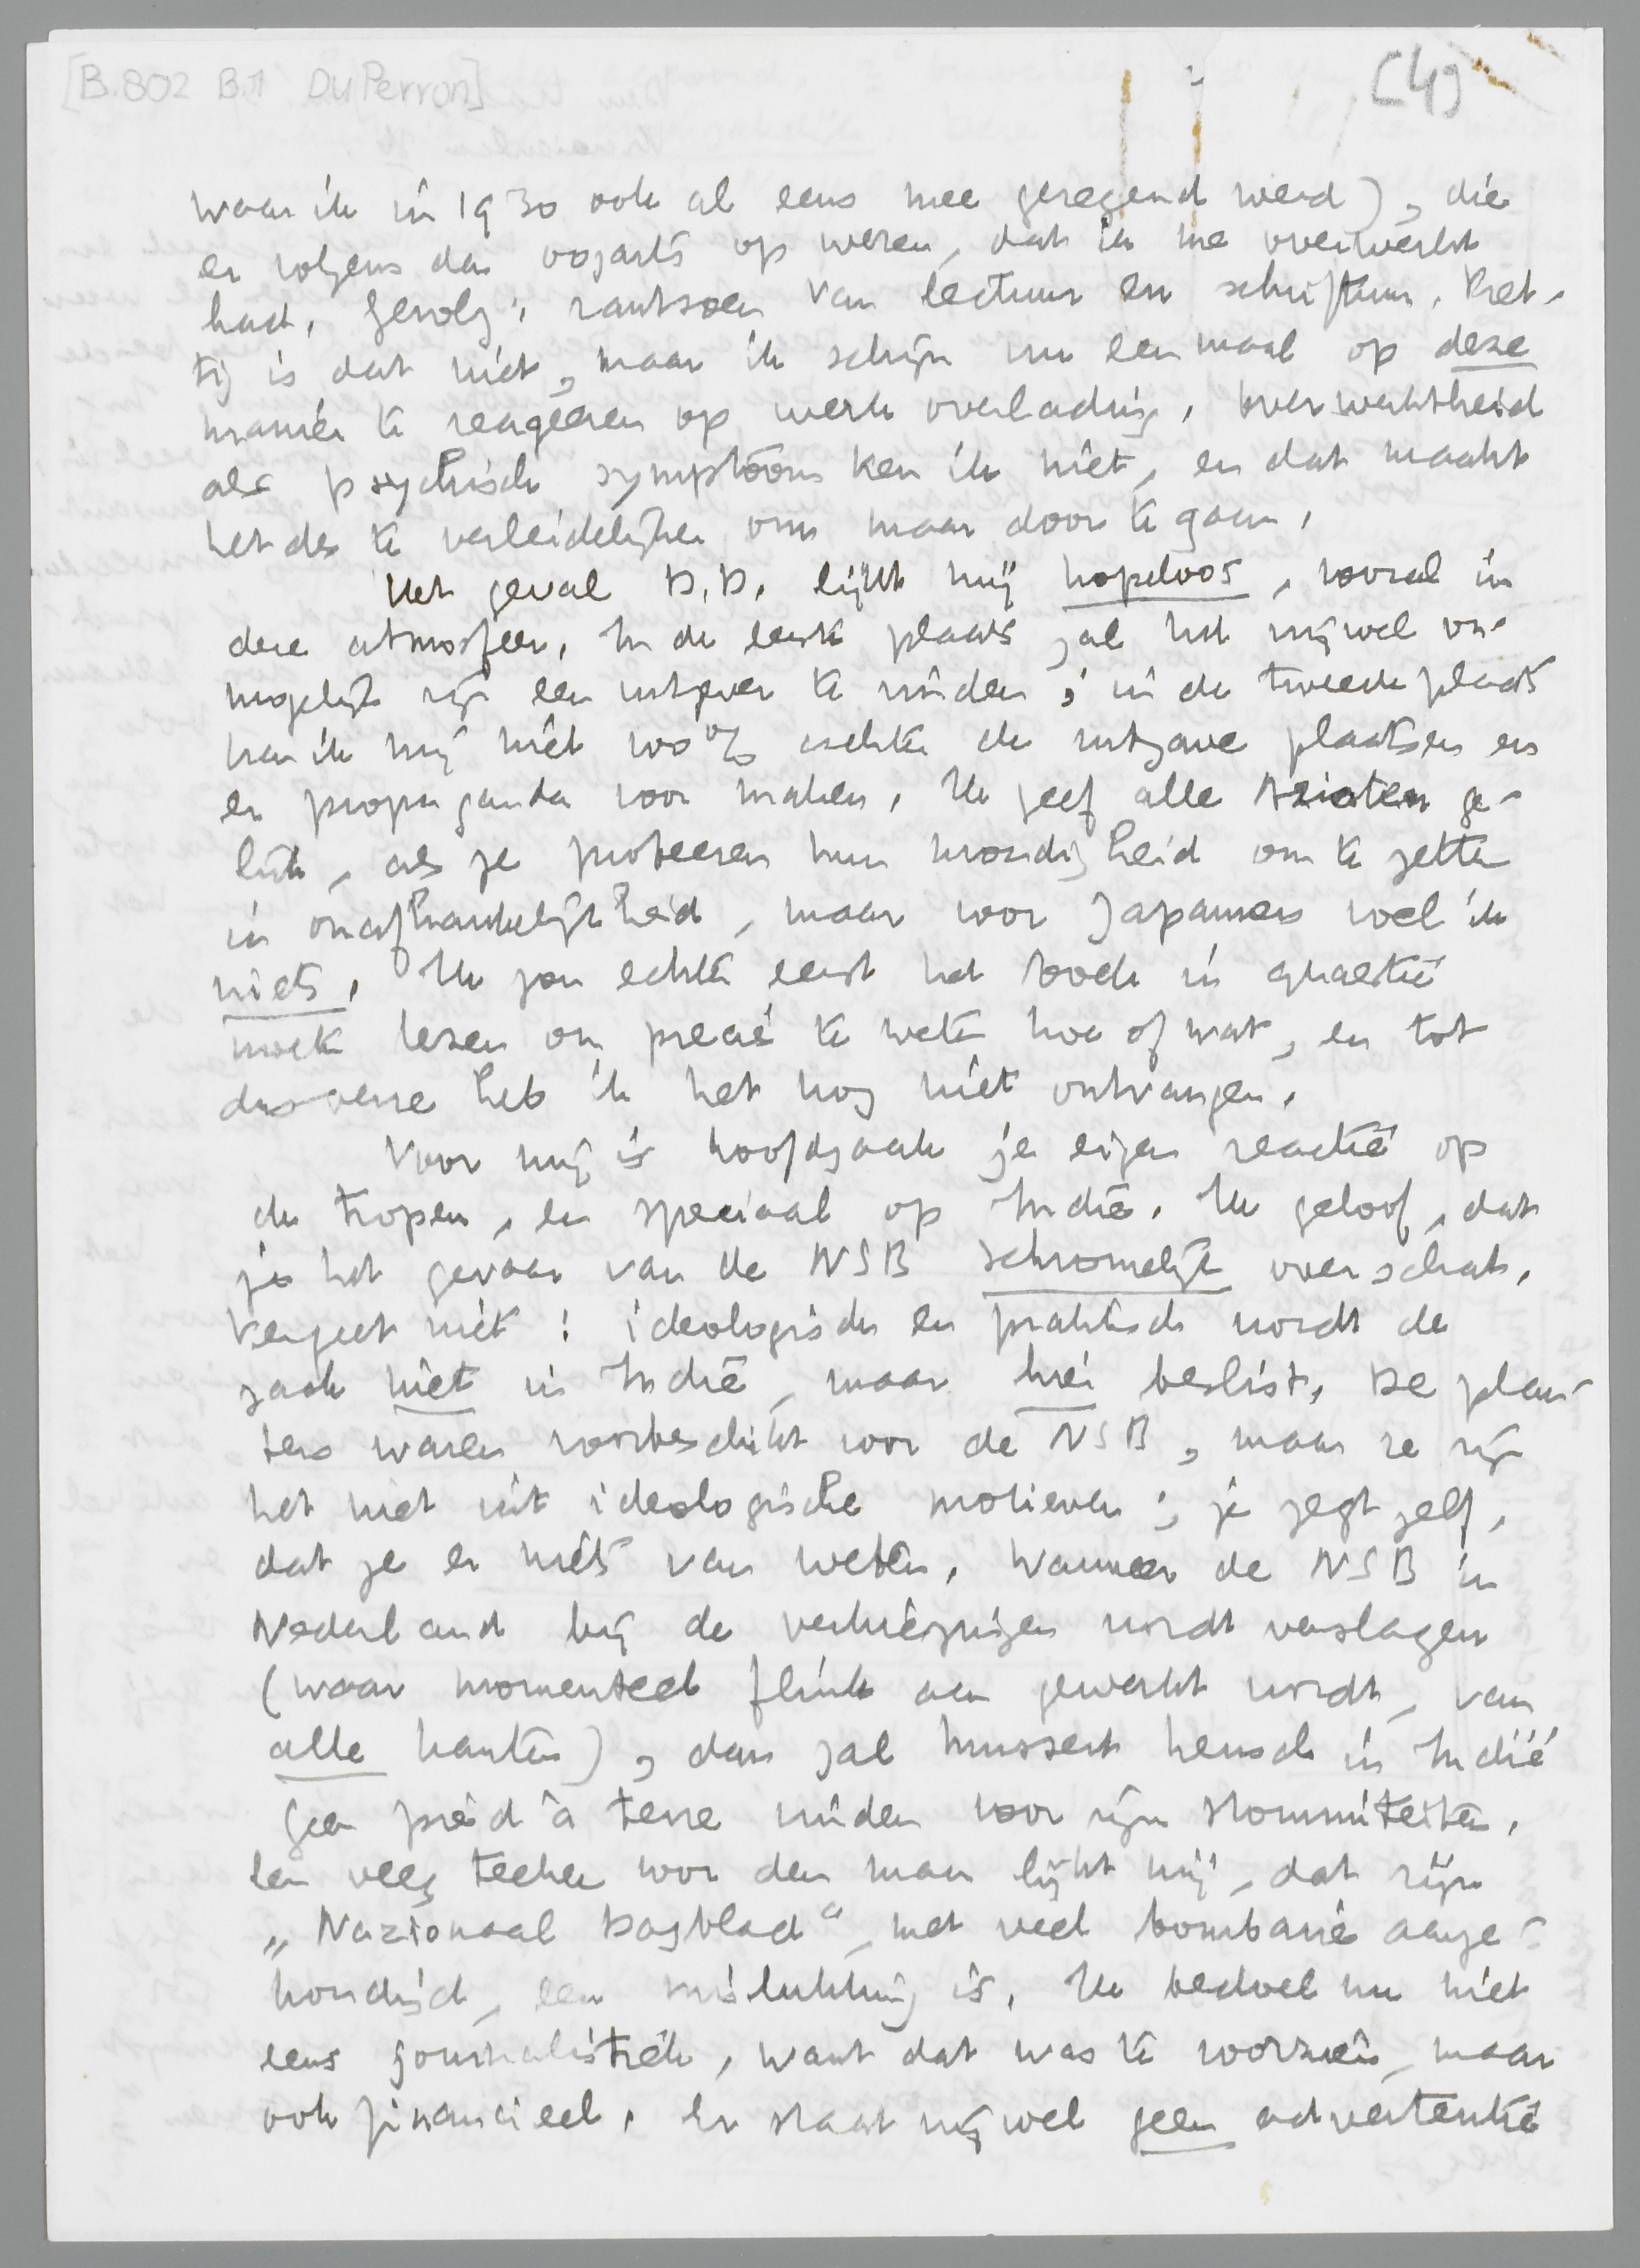 [B.802 B.1 Du Perron]
[4]
waar ik in 1930 ook al eens mee gezegend werd), die
er volgens den oogarts op wezen, dat ik me overwerkt
had. Gevolg: rantsoen van lectuur en schriftuur. Pret-
tig is dat niet, maar ik schijn nu eenmaal op deze
manier te reageeren op werkoverlading. Overwerktheid
als psychisch symptoom ken ik niet, en dat maakt
het des te verleidelijker om maar door te gaan.
Het geval D.D. lijkt mij hopeloos, vooral in
deze atmosfeer. In de eerste plaats zal het vrijwel on-
mogelijk zijn een uitgever te vinden; in de tweede plaats
kan ik mij niet 100% achter de uitgave plaatsen en
er propaganda voor maken. Ik geef alle Aziaten ge-
lijk, als ze probeeren hun mondigheid om te zetten
in onafhankelijkheid, maar voor Japanners voel ik
niets. Ik zou echter eerst het boek in quaestie
moeten lezen om precies te weten hoe of wat, en tot
dusverre heb ik het nog niet ontvangen.
Voor mij is hoofdzaak je eigen reactie op
de tropen, en speciaal op Indië. Ik geloof, dat
je het gevaar van de NSB schromelijk overschat.
Vergeet niet: ideologisch en praktisch wordt de
zaak niet in Indië, maar hier beslist. De plan-
ters waren voorbeschikt voor de NSB, maar ze zijn
het niet uit ideologische motieven; je zegt zelf,
dat ze er niets van weten. Wanneer de NSB in
Nederland bij de verkiezingen wordt verslagen
(waar momenteel flink aan gewerkt wordt, van
alle kanten), dan zal Mussert heusch in Indië
geen pied à terre vinden voor zijn stommiteiten.
Een veeg teeken voor den man lijkt mij, dat zijn
„Nazionaal Dagblad", met veel bombarie aange-
kondigd, een mislukking is. Ik bedoel nu niet
eens journalistiek, want dat was te voorzien, maar
ook financieel. Er staat vrijwel geen advertentie